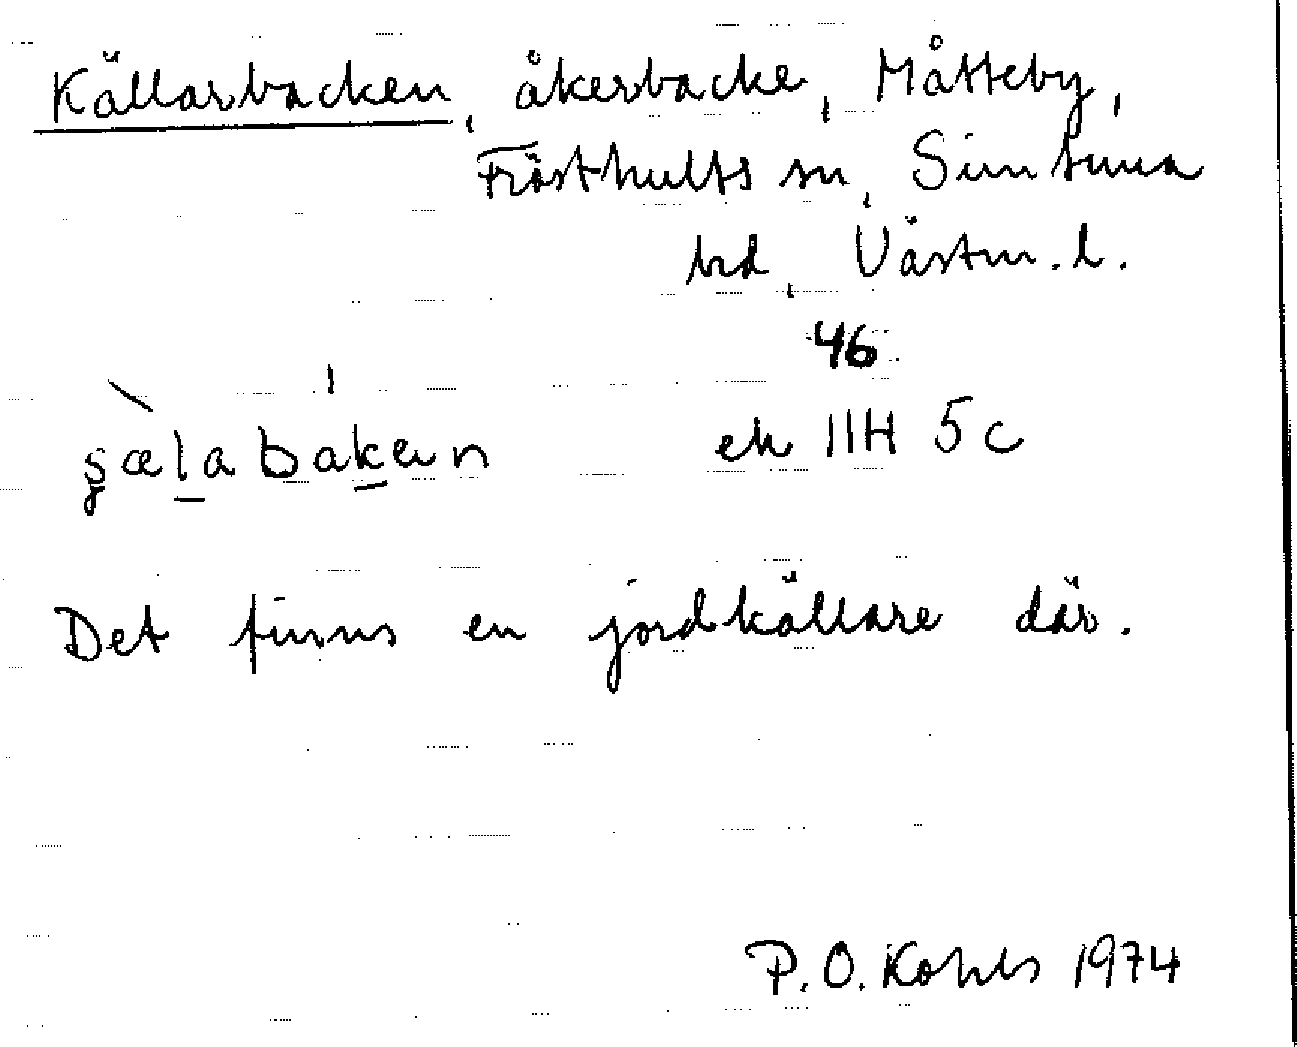 Källarbacken, åkerbacke, Måtteby,
Frösthults sn, Simtuna
hd, Västm. l.
46
şælabakən ek 11H 5c
Det finns en jordkällare där.
P.O. Kohls 1974